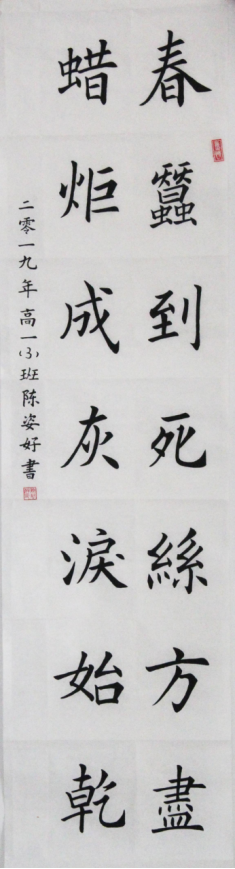 春蠶到死絲方盡
蜡炬成灰淚始乾
二零一九年高一(3)班陈姿好書